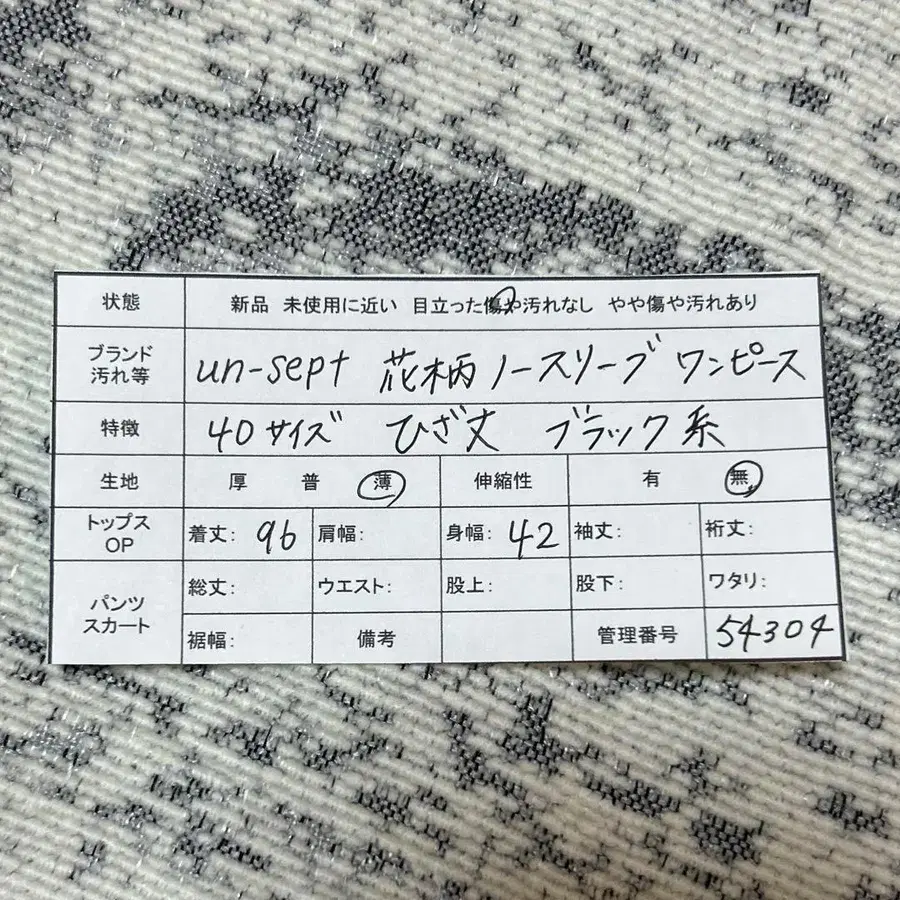 状態 新品 未使用に近い 目立った傷や汚れなし やや傷や汚れあり
ブランド 汚れ等 un-sept 花柄ノースリーブ ワンピース
特徴 40サイズ ひざ丈 ブラック系
生地 厚 普 薄 伸縮性 有 無
トップス OP 着丈: 96 肩幅: 身幅: 42 袖丈: 裄丈:
パンツ スカート 総丈: ウエスト: 股上: 股下: ワタリ:
裾幅: 備考 管理番号 54304